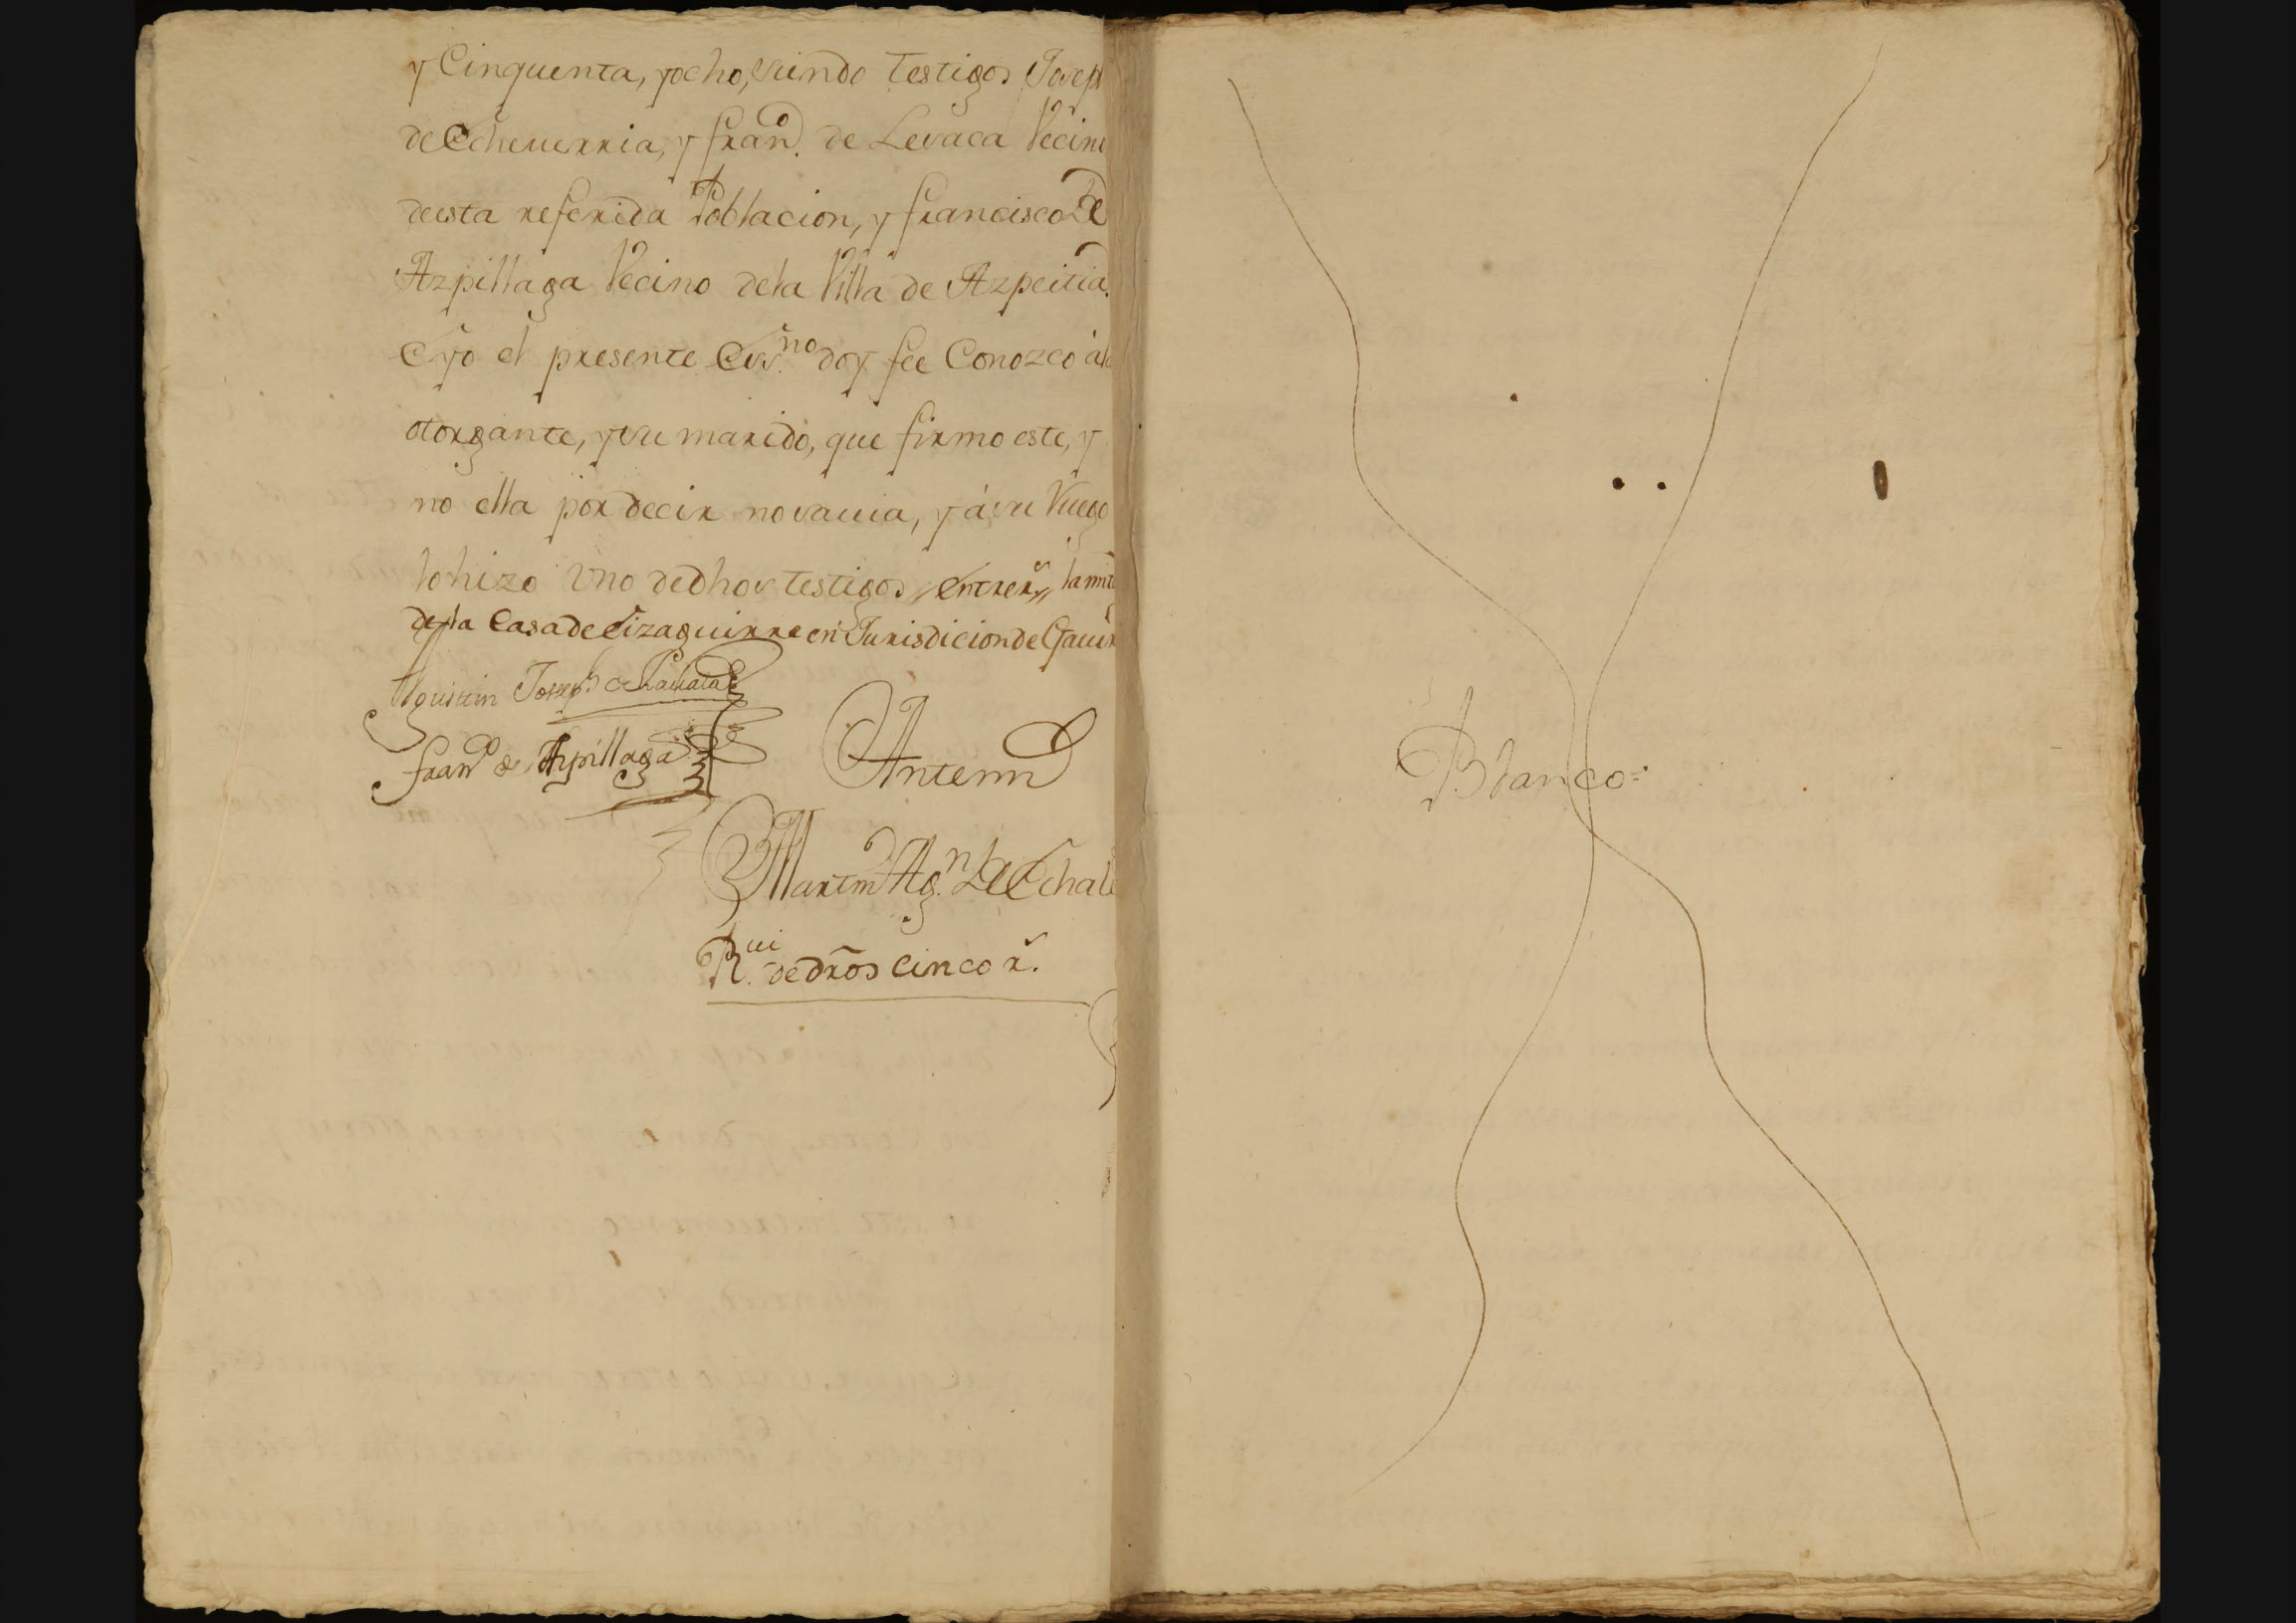 y Cinquenta, yocho, siendo testigos Joseph
de Echeuerria, y fran.co de Lesaca Vecino
desta referida Poblacion, y francisco de
Azpillaga Vecino dela Villa de Azpeitia.
E yo el presente Ess.no doy fee Conozco ála
otorgante, y su marido, que firmo este, y
no ella por decir no sauia, y á su Ruego
lo hizo Uno de dhos testigos, entrerr.s la mitd
de la Casa de Eizaguirre en Jurisdicion de Gauir
Agustin Joseph de
fran.co de Azpillaga
Antemi
Martin Ag.n de Echa
R.ui de dros cinco r.s
Blanco=